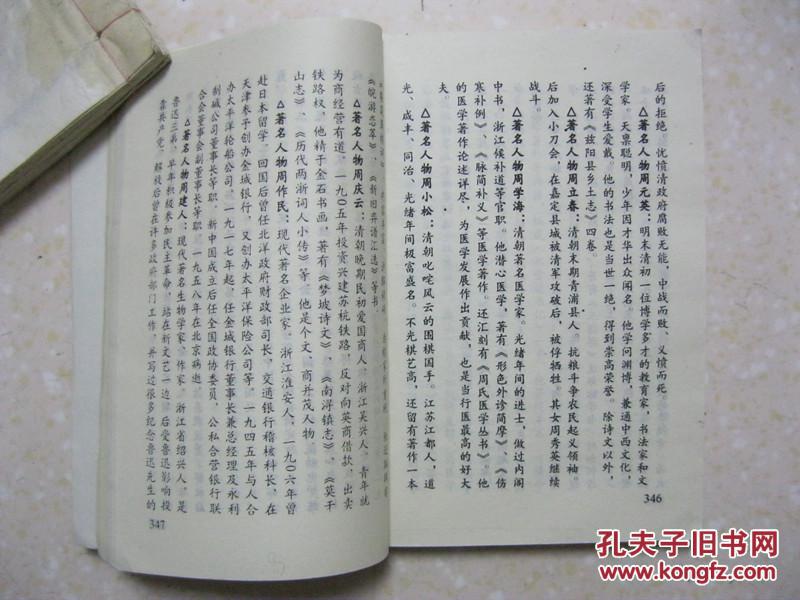 后的拒绝。忧愤清政府腐败无能，中战而败、义愤而死
△著名人物周元英：明末清初一位博学多才的教育家，书法家和文
学家。天禀聪明，少年因才华出众闻名。他学问渊博，兼通中西文化，
深受学生爱戴。他的书法也是当世一绝，得到崇高荣誉。除诗文以外，
还著有《兹阳县乡土志》四卷。
△著名人物周立春：清朝末期青浦县人。抗粮斗争农民起义领袖。
后加入小刀会，在嘉定县域被清军攻破后，被俘牺牲。其女周秀英继续
战斗。
△著名人物周学海：清朝著名医学家。光绪年间的进士，做过内阁
中书，浙江候补道等官职。他潜心医学，著有《形色外诊简摩》、《伤
寒补例》、《脉简补义》等医学著作。还汇刻有《周氏医学丛书》。他
的医学著作论述详尽，为医学发展作出贡献，也是当行医最高的好大
夫。
△著名人物周小松：清朝叱咤风云的围棋国手。江苏江都人，道
光、咸丰、同治、光绪年间极富盛名。不光棋艺高，还留有著作一本
346
《皖游恋萃》、《新旧弈谱汇选》等书
△著名人物周庆云：清朝晚期民初爱国商人。浙江吴兴人。青年就
为商经营有道，一九〇五年投资兴建苏杭铁路，反对向英商借款，出卖
铁路权，他精于金石书画，著有《梦坡诗文》、《南浔镇志》、《莫干
山志》、《历代两浙词人小传》等，他是个文、商并茂人物
△著名人物周作民：现代著名企业家。浙江淮安人，一九〇六年曾
赴日本留学。回国后曾任北洋政府财政部司长，交通银行稽核科长，在
天津参予创办金城银行，又创办太平洋保险公司等，一九四五年与人合
办太平洋轮船公司。一九一七年起，任金城银行董事长兼总经理及永利
制碱公司董事长等职。新中国成立后任全国政协委员，公私合营银行联
合会董事会副董事长等职，一九五八年在北京病逝。
△著名人物周建人：现代著名生物学家、作家。浙江省绍兴人。是
鲁迅三弟，早年积极参加民主革命，站在新文艺一边。后受鲁迅影响投
靠共产党，解放后曾在许多政府部门工作，并写过很多纪念鲁迅先生的
347
孔夫子旧书网
www.kongfz.com